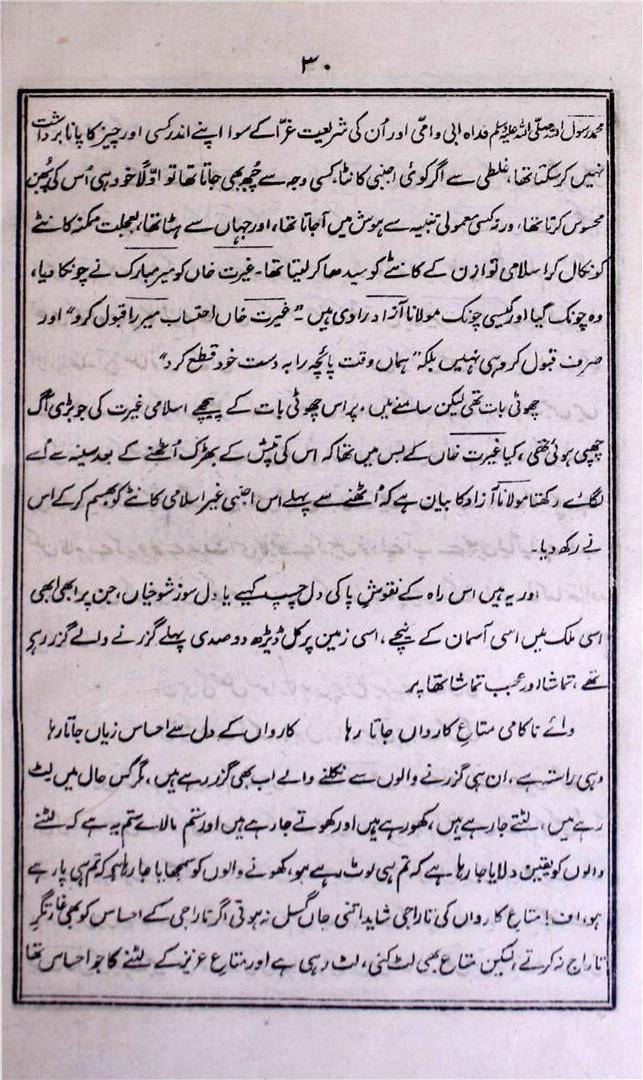 ۳۰
محمد رسول اللہ صلی اللہ علیہ وسلم فداہ ابی وامی اور اُن کی شریعت غرّا کے سوا اپنے اندر کسی اور چیز کا پانا برداشت
نہیں کر سکتا تھا، غلطی سے اگر کوئی اجنبی کانٹا، کسی وجہ سے چُبھ بھی جاتا تھا تو اوّلاً خود ہی اُس کی چُبھن
محسوس کرتا تھا، ورنہ کسی معمولی تنبیہ سے ہوش میں آجاتا تھا، اور جہاں سے ہٹا تھا، بعجلت ممکنہ کانٹے
کو نکال کر اسلامی توازن کے کانٹے کو سیدھا کر لیتا تھا۔ غیرت خاں کو میر مبارک نے چونکا دیا،
وہ چونک گیا اور کیسی چونک مولانا آزاد راوی ہیں۔ "غیرت خاں احتساب میر را قبول کرد" اور
صرف قبول کرد ہی نہیں بلکہ "ہماں وقت پائچہ را بہ دست خود قطع کرد"
چھوٹی بات تھی لیکن سامنے میں، پر اس چھوٹی بات کے پیچھے اسلامی غیرت کی جو بڑی آگ
چھپی ہوئی تھی، کیا غیرت خاں کے بس میں تھا کہ اس کی تپش کے بھڑک اُٹھنے کے بعد سینہ سے اُسے
لگائے رکھتا مولانا آزاد کا بیان ہے کہ اُٹھنے سے پہلے اس اجنبی غیر اسلامی کانٹے کو بھسم کر کے اس
نے رکھ دیا۔
اور یہ ہیں اس راہ کے نقوش پا کی دل چسپ کہیے یا دل سوز شوخیاں، جن پر ابھی ابھی
اسی ملک میں اسی آسمان کے نیچے، اسی زمین پر کل ڈیڑھ دو صدی پہلے گزرنے والے گزر رہے
تھے، تماشا اور عجب تماشا تھا پر
وائے ناکامی متاعِ کارواں جاتا رہا کارواں کے دل سے احساس زیاں جاتا رہا
وہی راستہ ہے، ان ہی گزرنے والوں سے نکلنے والے اب بھی گزر رہے ہیں، مگر کس حال میں لٹ
رہے ہیں، لٹتے جا رہے ہیں، کھو رہے ہیں اور کھوتے جا رہے ہیں اور ستم بالائے ستم یہ ہے کہ لٹنے
والوں کو یقین دلایا جا رہا ہے کہ تم ہی لوٹ رہے ہو، کھونے والوں کو سمجھایا جا رہا ہے کہ تم ہی پا رہے
ہو، اف! متاع کارواں کی تاراجی شاید اتنی جاں گسل نہ ہوتی اگر تاراجی کے احساس کو بھی غارتگر
تاراج نہ کرتے، لیکن متاع بھی لٹ گئی، لٹ رہی ہے اور متاع عزیز کے لٹنے کا جو احساس تھا